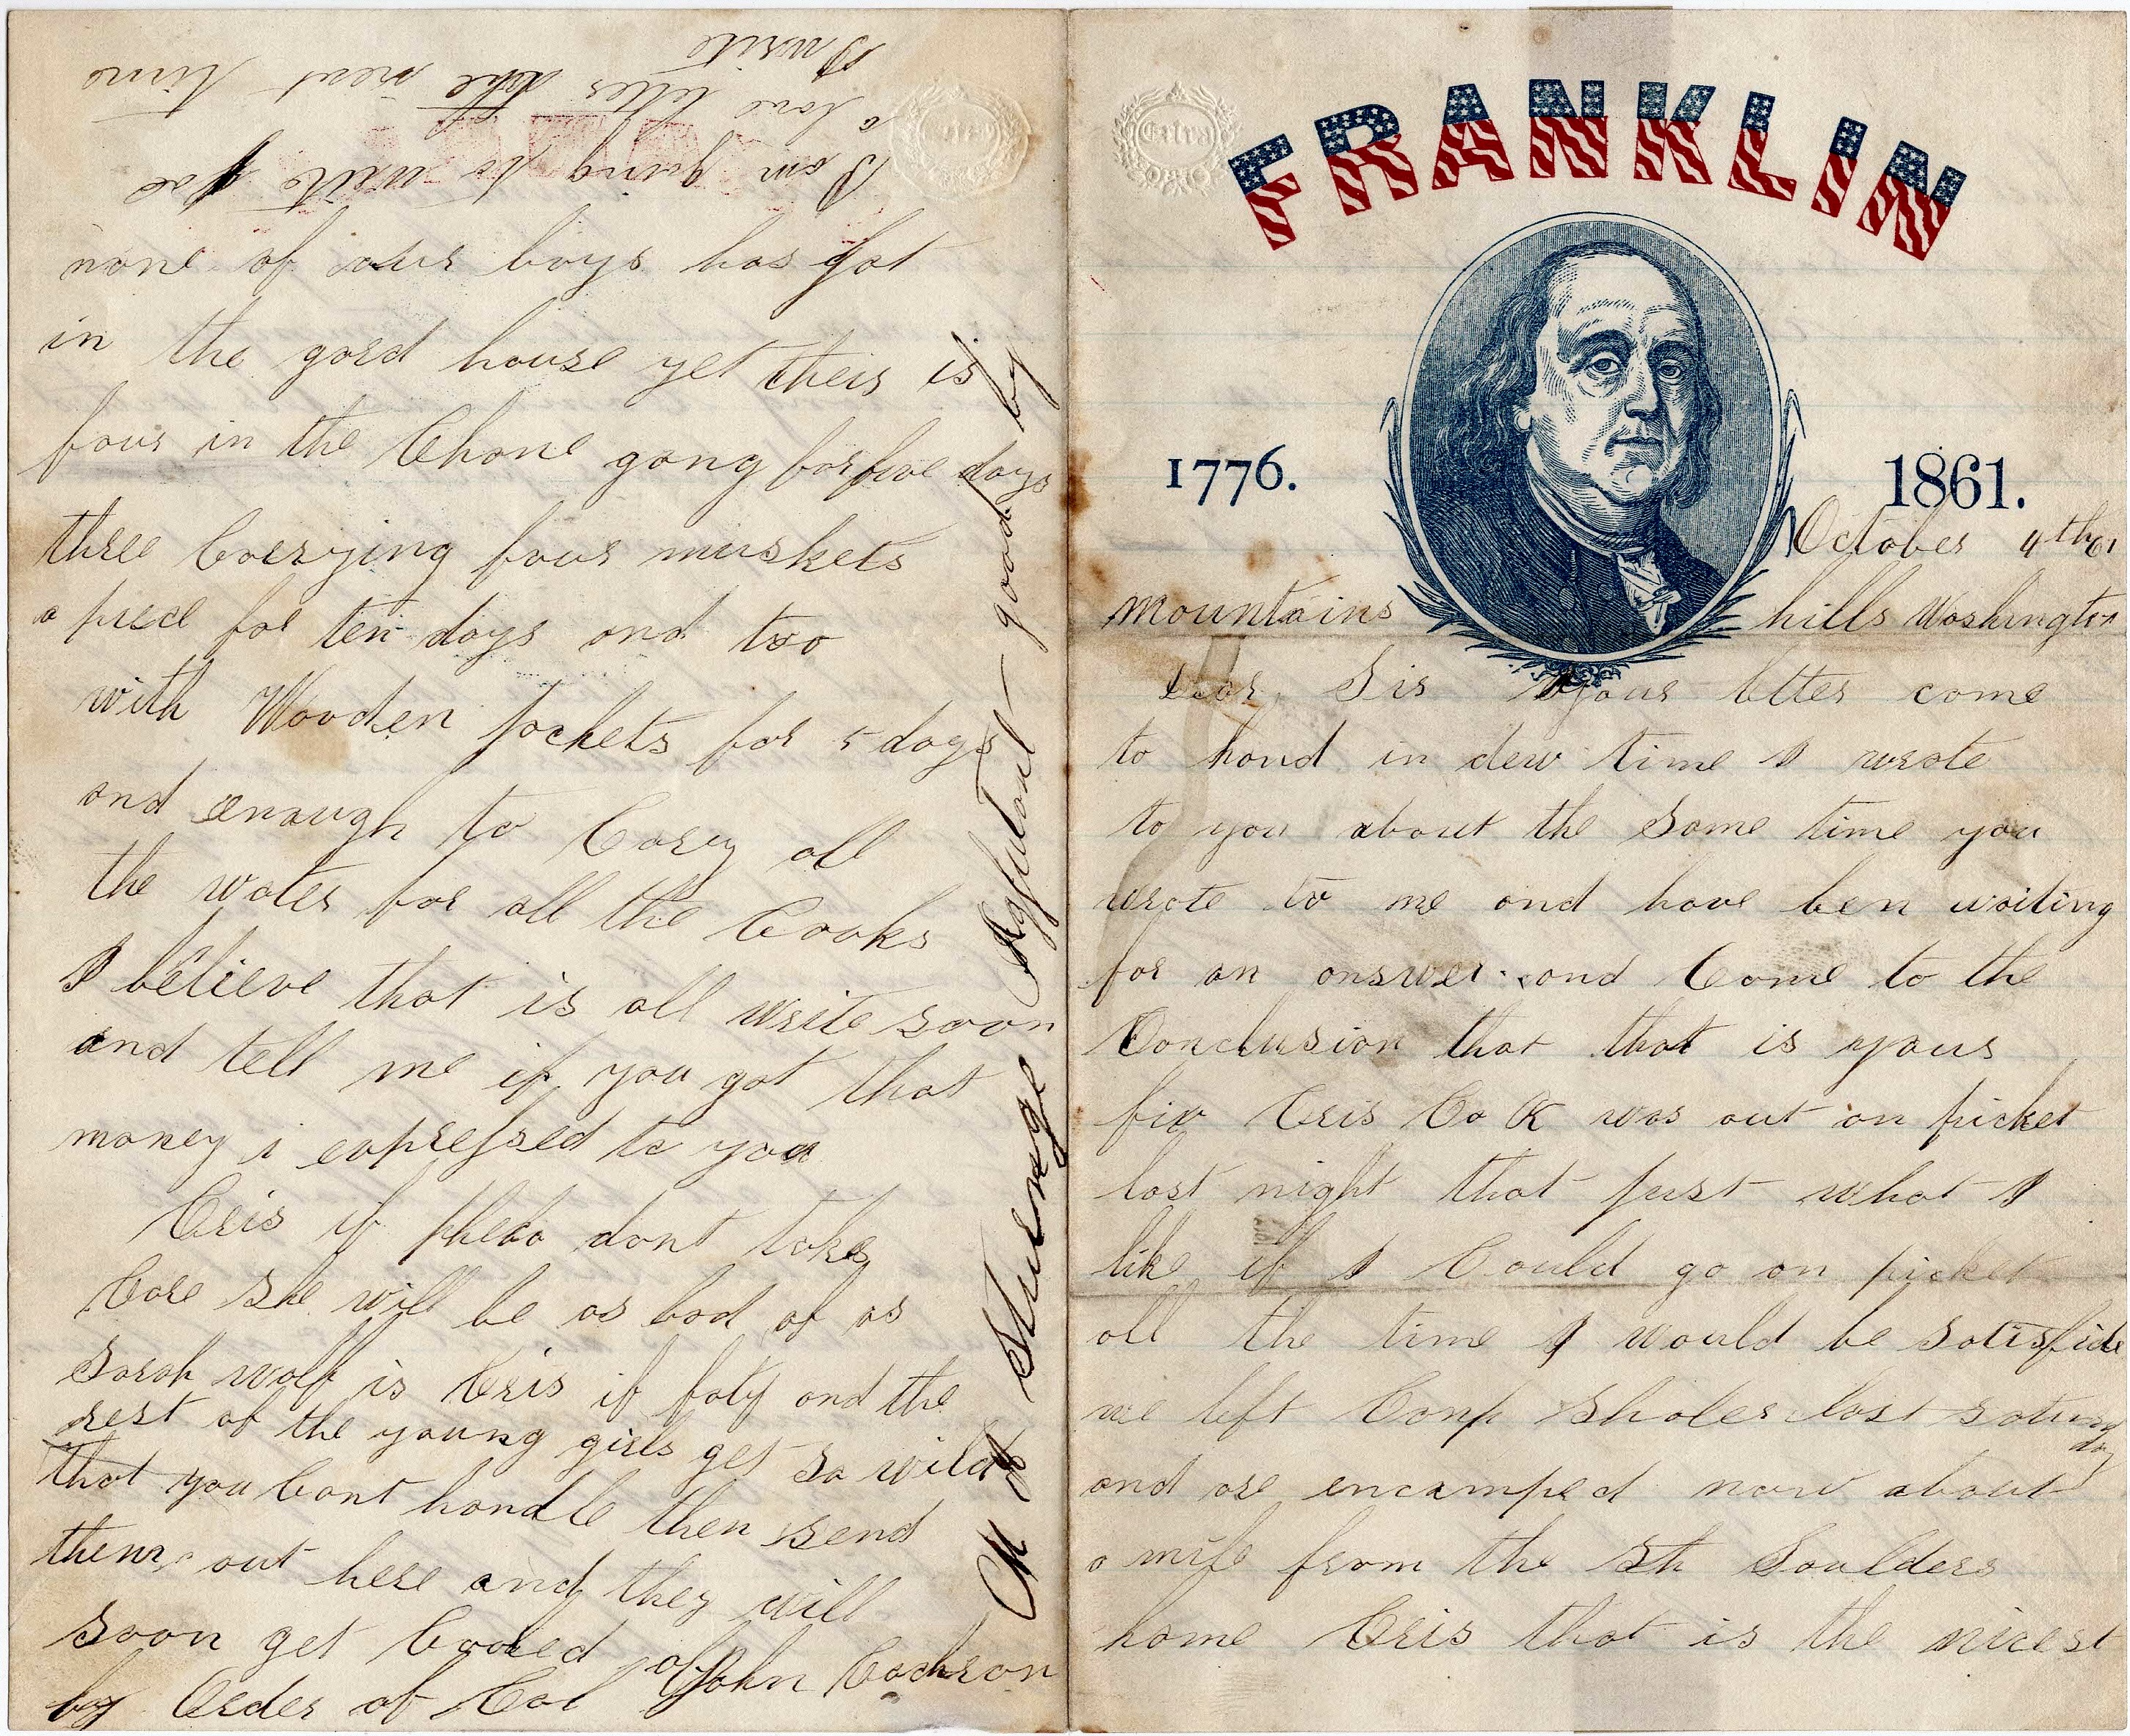 FRANKLIN
1776. 1861.
October 4th 61
mountains hills Washington
Dear Sis your letter come
to hand in dew time I wrote
to you about the same time you
wrote to me and have ben waiting
for an answer and Come to the
Conclusion that that is your
fix Cris Co K was out on picket
last night that just what I
like if I Could go on picket
all the time I would be satisfide
we left Camp Sholer last saturday
and are encamped now about
a mile from the Soulders
home Cris that is the nicest
none of our boys has got
in the gard house yet their is
four in the Chane gang for five days
three Carrying four muskets
a piece for ten days and two
with Wooden Jackets for 5 days
and enough to Cary all
the water for all the Cooks
I believe that is all write soon
and tell me if you got that
money i expressed to you
Cris if pheba dont take
Care she will be as bad of as
Sarah wolf is Cris if faty and the
rest of the young girls get so wild
that you Cant handle then send
them out here and they will
soon get Cooled of
by Order of Col John Cochron
good by
I am going to write you
a love letter the next time
I write